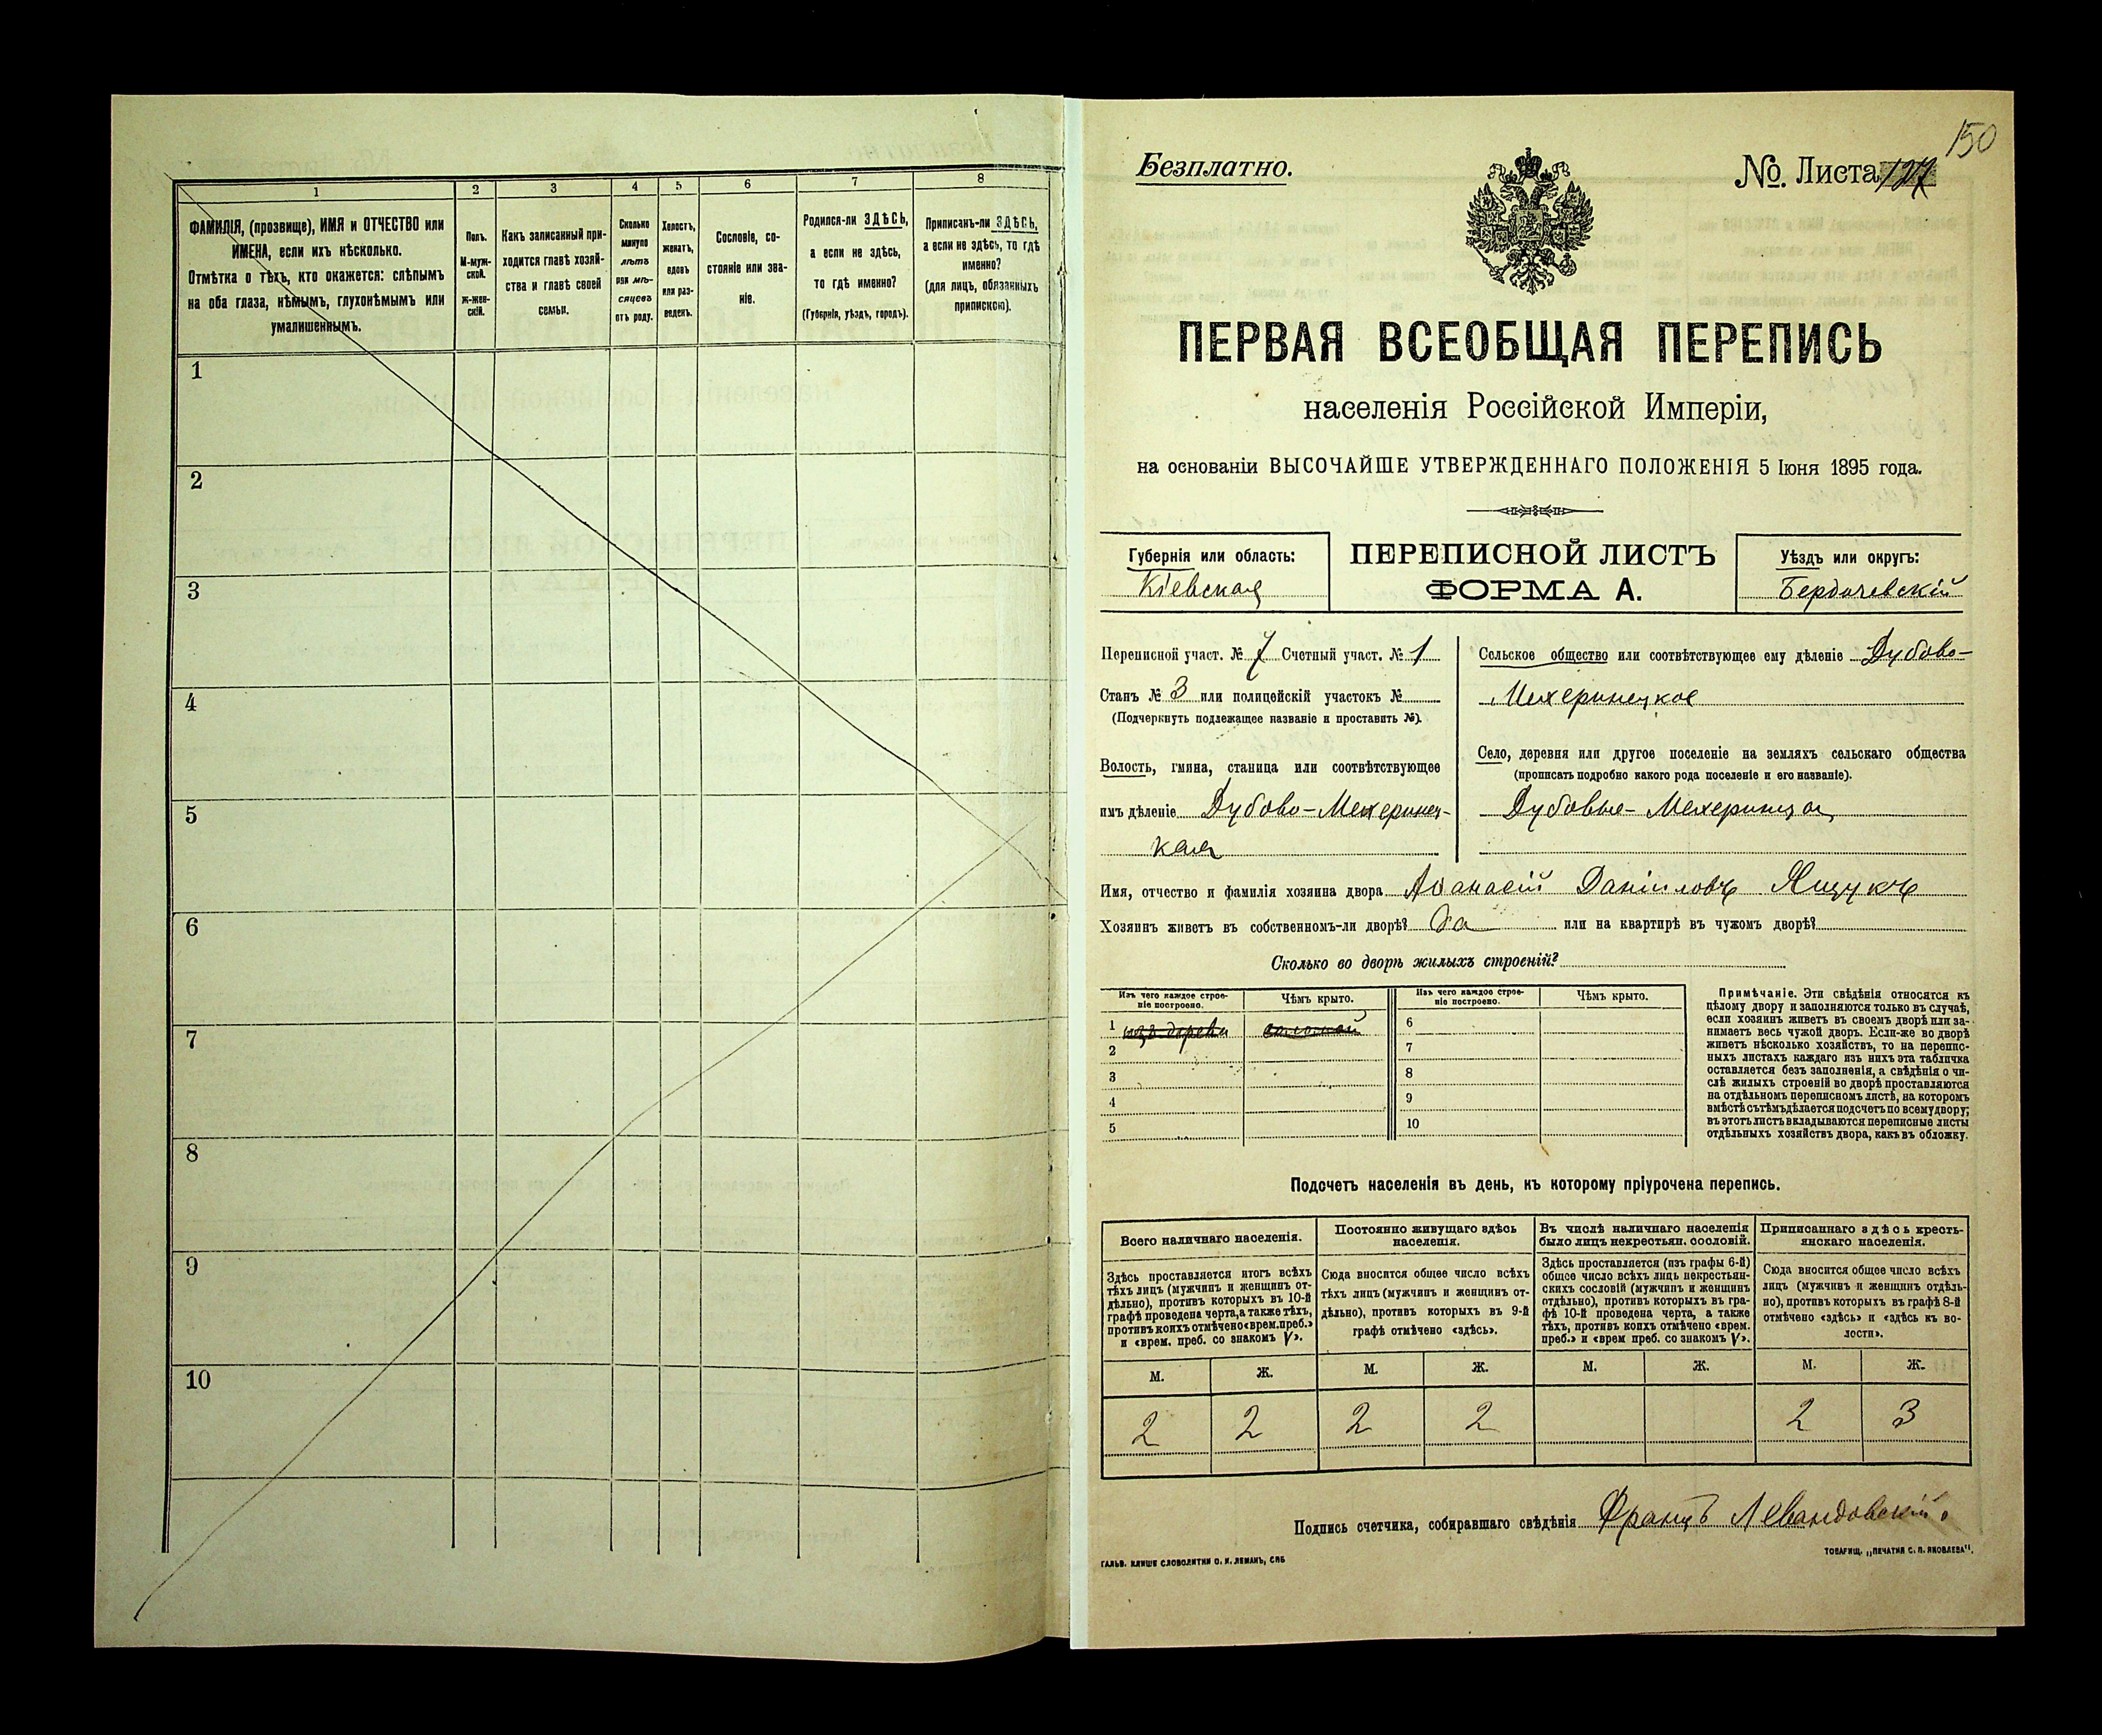 1
2
3
4
5
6
7
8
ФАМИЛІЯ, (прозвище), ИМЯ и ОТЧЕСТВО или
ИМЕНА, если ихъ нѣсколько.
Отмѣтка о тѣхъ, кто окажется: слѣпымъ
на оба глаза, нѣмымъ, глухонѣмымъ или
умалишеннымъ.
Полъ.
М-муж-
ской.
ж-жен-
скій.
Какъ записанный при-
ходится главѣ хозяй-
ства и главѣ своей
семьи.
Сколько
минуло
лѣтъ
или мѣ-
сяцевъ
отъ роду.
Холостъ,
женатъ,
вдовъ
или раз-
веденъ.
Сословіе, со-
стояніе или зва-
ніе.
Родился-ли ЗДѢСЬ,
а если не здѣсь,
то гдѣ именно?
(Губернія, уѣздъ, городъ).
Приписанъ-ли ЗДѢСЬ,
а если не здѣсь, то гдѣ
именно?
(для лицъ, обязанныхъ
припискою).
1
2
3
4
5
6
7
8
9
10
150
Безплатно.
№. Листа 127
ПЕРВАЯ ВСЕОБЩАЯ ПЕРЕПИСЬ
населенія Россійской Имперіи,
на основаніи ВЫСОЧАЙШЕ УТВЕРЖДЕННАГО ПОЛОЖЕНІЯ 5 Іюня 1895 года.
Губернія или область:
Кіевская
ПЕРЕПИСНОЙ ЛИСТЪ
ФОРМА А.
Уѣздъ или округъ:
Бердичевскій
Переписной участ. № 7 Счетный участ. № 1
Станъ № 3 или полицейскій участокъ №
(Подчеркнуть подлежащее названіе и проставить №).
Волость, гмина, станица или соотвѣтствующее
имъ дѣленіе Дубово-Мехеринец-
кая
Сельское общество или соотвѣтствующее ему дѣленіе Дубово-
Мехеринецкое
Село, деревня или другое поселеніе на земляхъ сельскаго общества
(прописать подробно какого рода поселеніе и его названіе).
Дубовые-Мехеринцы
Имя, отчество и фамилія хозяина двора Аѳанасій Даніиловъ Ящукъ
Хозяинъ живетъ въ собственномъ-ли дворѣ? Да или на квартирѣ въ чужомъ дворѣ?
Сколько во дворѣ жилыхъ строеній?
Изъ чего каждое строе-
ніе построено.
Чѣмъ крыто.
Изъ чего каждое строе-
ніе построено.
Чѣмъ крыто.
1 изъ дерева соломой
2
3
4
5
6
7
8
9
10
Примѣчаніе. Эти свѣдѣнія относятся къ
цѣлому двору и заполняются только въ случаѣ,
если хозяинъ живетъ въ своемъ дворѣ или за-
нимаетъ весь чужой дворъ. Если-же во дворѣ
живетъ нѣсколько хозяйствъ, то на перепис-
ныхъ листахъ каждаго изъ нихъ эта табличка
оставляется безъ заполненія, а свѣдѣнія о чи-
слѣ жилыхъ строеній во дворѣ проставляются
на отдѣльномъ переписномъ листѣ, на которомъ
вмѣстѣ съ тѣмъ дѣлается подсчетъ по всему двору;
въ этотъ листъ вкладываются переписные листы
отдѣльныхъ хозяйствъ двора, какъ въ обложку.
Подсчетъ населенія въ день, къ которому пріурочена перепись.
Всего наличнаго населенія.
Постоянно живущаго здѣсь
населенія.
Въ числѣ наличнаго населенія
было лицъ некрестьян. сословій.
Приписаннаго здѣсь кресть-
янскаго населенія.
Здѣсь проставляется итогъ всѣхъ
тѣхъ лицъ (мужчинъ и женщинъ от-
дѣльно), противъ которыхъ въ 10-й
графѣ проведена черта, а также тѣхъ,
противъ коихъ отмѣчено «врем. преб.»
и «врем. преб. со знакомъ V».
Сюда вносится общее число всѣхъ
тѣхъ лицъ (мужчинъ и женщинъ от-
дѣльно), противъ которыхъ въ 9-й
графѣ отмѣчено «здѣсь».
Здѣсь проставляется (изъ графы 6-й)
общее число всѣхъ лицъ некрестьян-
скихъ сословій (мужчинъ и женщинъ
отдѣльно), противъ которыхъ въ гра-
фѣ 10-й проведена черта, а также
тѣхъ, противъ коихъ отмѣчено «врем.
преб.» и «врем преб. со знакомъ V».
Сюда вносится общее число всѣхъ
лицъ (мужчинъ и женщинъ отдѣль-
но), противъ которыхъ въ графѣ 8-й
отмѣчено «здѣсь» и «здѣсь къ во-
лости».
М. Ж. М. Ж. М. Ж. М. Ж.
2 2 2 2 2 3
Подпись счетчика, собиравшаго свѣдѣнія Францъ Левандовскій.
ГАЛЬВ. КЛИШЕ СЛОВОЛИТНИ О. И. ЛЕМАНЪ, СПБ
ТОВАРИЩ. „ПЕЧАТНЯ С. П. ЯКОВЛЕВА".